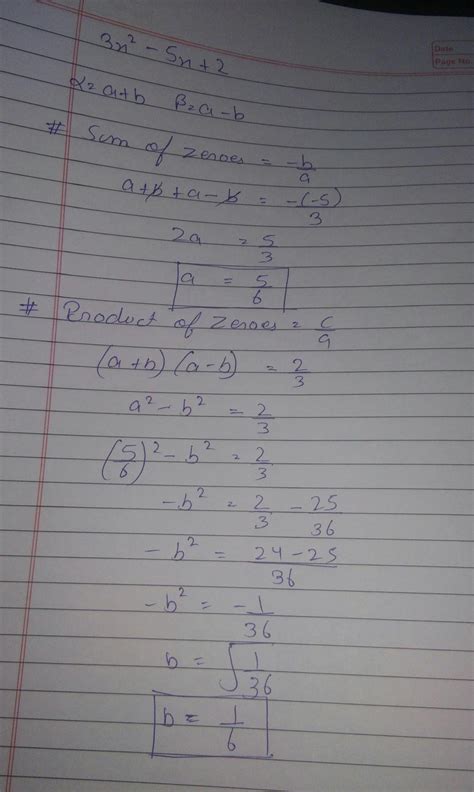 Date
Page No.
3x² - 5x + 2
α = a+b β = a-b
# Sum of zeroes = -b/a
a+b+a-b = -(-5)/3
2a = 5/3
a = 5/6
# Product of zeroes = c/a
(a+b) (a-b) = 2/3
a² - b² = 2/3
(5/6)² - b² = 2/3
-b² = 2/3 - 25/36
-b² = 24-25/36
-b² = -1/36
b = √1/36
b = 1/6